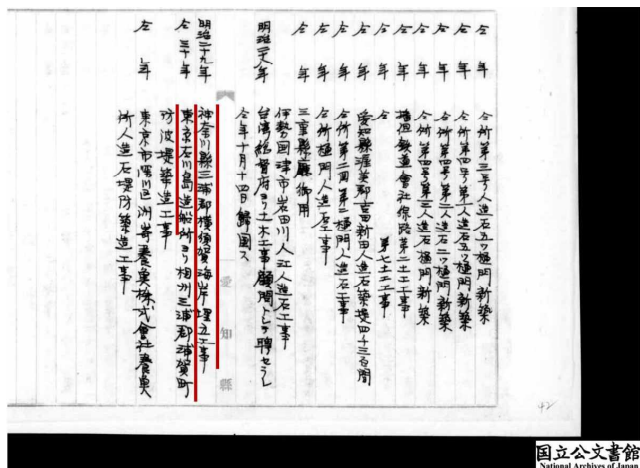 仝 年 仝所第三号人造石五ツ樋門新築
仝 年 仝所第四号第一人造石五ツ樋門新築
仝 年 仝所第四号第二人造石二ツ樋門新築
仝 年 仝所第四号第三人造石樋門新築
仝 年 播但鉄道會社線路第二土工工事
仝 年 仝 第七土工工事
仝 年 愛知縣渥美郡高田新田人造石築堤四十三百間
仝 年 仝所第二間第二樋門人造石工事
仝 年 仝所樋門人造石工事
仝 年 三重縣廳御用
伊勢國津市岩田川人江人造石工事
明治廿八年 台湾総督府ヨリ土木工事顧問トシテ聘セラレ
仝年十月十四日歸國ス
明治二十九年 神奈川縣三浦郡横須賀海岸埋立工事
仝三十年 東京石川島造船所ヨリ相州三浦郡浦賀町
防波堤築造工事
仝 年 東京市深川区洲崎養魚株式會社養魚
所人造石堤防築造工事
愛知縣
42
国立公文書館
National Archives of Japan